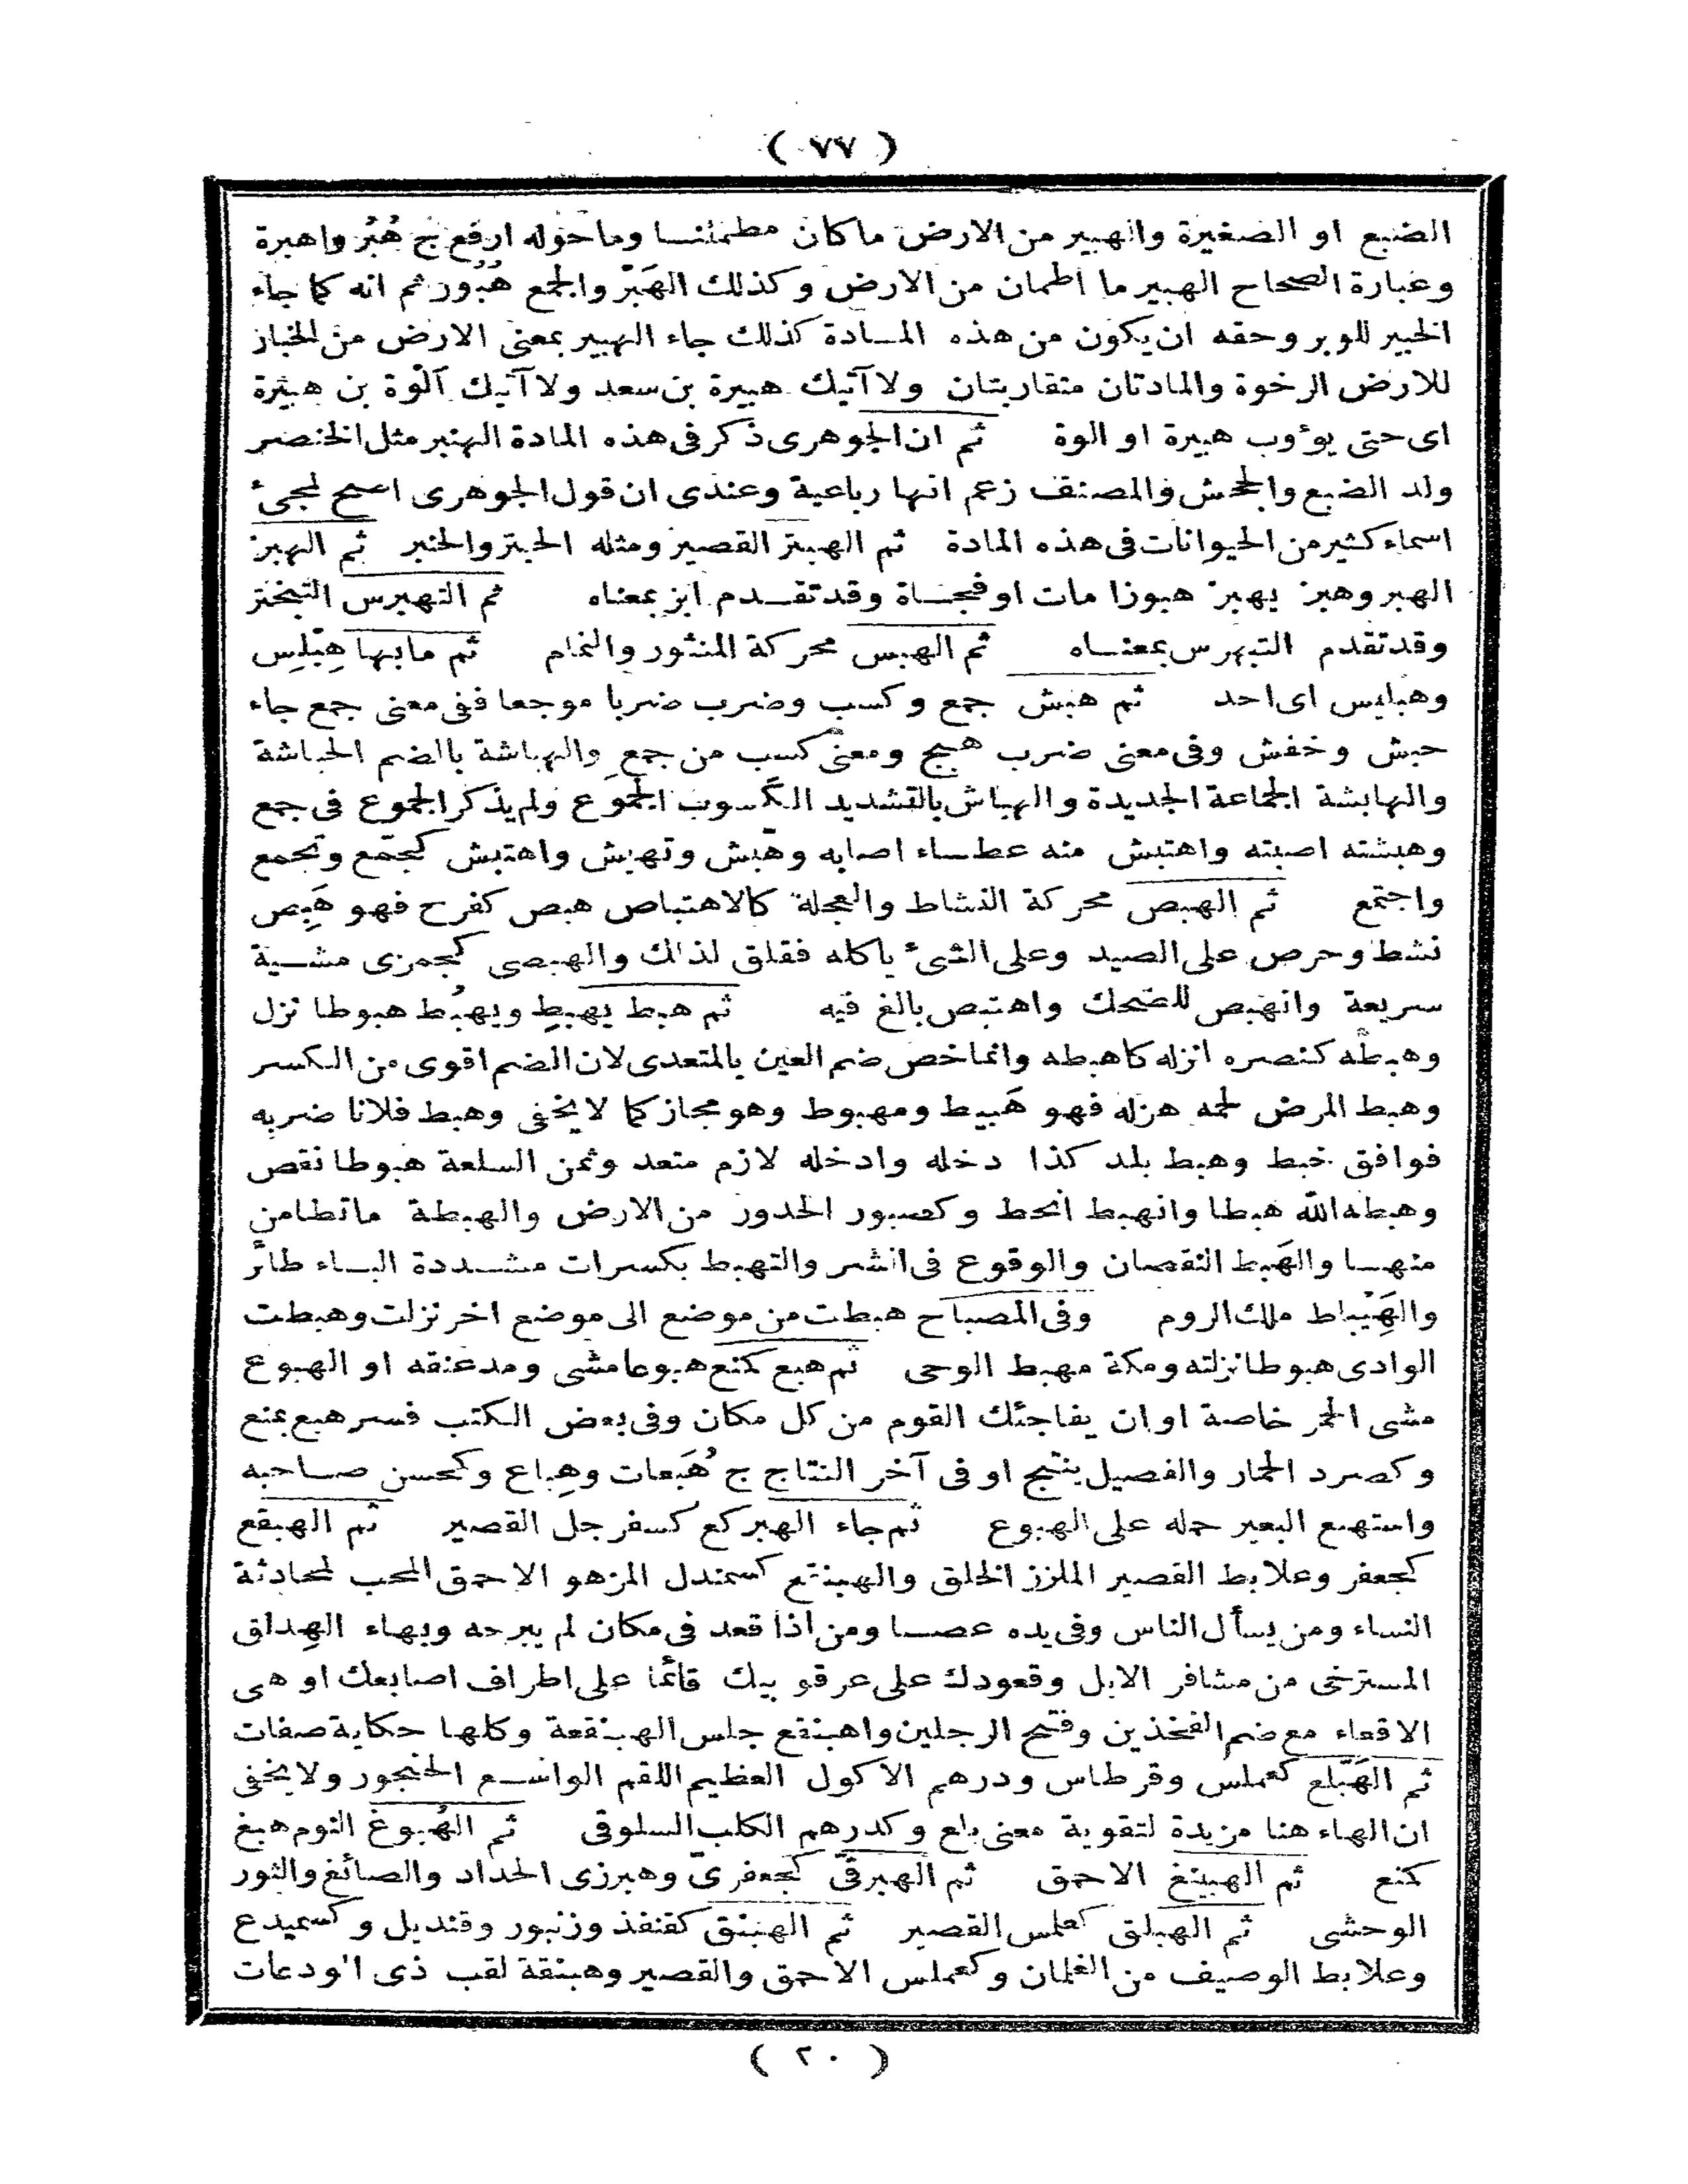 ( ٧٧ )
الضبع او الصغيرة والهبير من الارض ما كان مطمئنا وما حوله ارفع ج هُبُر واهبرة
وعبارة الصحاح الهبير ما اطمان من الارض وكذلك الهَبْر والجمع هُبُور ثم انه كما جاء
الخبير للوبر وحقه ان يكون من هذه المادة كذلك جاء الهبير بمعنى الارض من الخبار
للارض الرخوة والمادتان متقاربتان ولا آتيك هبيرة بن سعد ولا آتيك ألوة بن هبيرة
اى حتى يوٴوب هبيرة او الوة ثم ان الجوهرى ذكر فى هذه المادة الهنبر مثل الخنصر
ولد الضبع والجحش والمصنف زعم انها رباعية وعندى ان قول الجوهرى اصح لمجىء
اسماء كثير من الحيوانات فى هذه المادة ثم الهبتر القصير ومثله الحبتر والحنبر ثم الهبز
الهبر وهبز يهبز هبوزا مات او فجاة وقد تقدم ابز بمعناه ثم التهبرس التبختر
وقد تقدم التبهرس بمعناه ثم الهبس محركة المنثور والنمام ثم ما بها هِبْلِس
وهبليس اى احد ثم هبش جمع وكسب وضرب ضربا موجعا ففى معنى جمع جاء
حبش وخفش وفى معنى ضرب هبج ومعنى كسب من جمع والهباشة بالضم الحباشة
والهابشة الجماعة الجديدة والهباش بالتشديد الكَسوب الجَموع ولم يذكر الجموع فى جمع
وهبشته اصبته واهتبش منه عطاء اصابه وهبّش وتهبش واهتبش كجمّع وتجمع
واجتمع ثم الهبص محركة النشاط والعجلة كالاهتباص هبص كفرح فهو هَبِص
نشط وحرص على الصيد وعلى الشىء ياكله فقلق لذلك والهبصى كجمزى مشية
سريعة وانهبص للضحك واهتبص بالغ فيه ثم هبط يهبِط ويهبُط هبوطا نزل
وهبطه كنصره انزله كاهبطه وانما خص ضم العين بالمتعدى لان الضم اقوى من الكسر
وهبط المرض لحمه هزله فهو هَبيط ومهبوط وهو مجاز كما لا يخفى وهبط فلانا ضربه
فوافق خبط وهبط بلد كذا دخله وادخله لازم متعد وثمن السلعة هبوطا نقص
وهبطه الله هبطا وانهبط انحط وكصبور الحدور من الارض والهبطة ما تطامن
منها والهَبط النقصان والوقوع فى الشر والتهبط بكسرات مشددة الباء طائر
والهَيْباط ملك الروم وفى المصباح هبطت من موضع الى موضع اخر نزلت وهبطت
الوادى هبوطا نزلته ومكة مهبط الوحى ثم هبع كمنع هبوعا مشى ومد عنقه او الهبوع
مشى الحمر خاصة او ان يفاجئك القوم من كل مكان وفى بعض الكتب فسر هبع بمنع
وكصرد الحمار والفصيل ينتج او فى آخر النتاج ج هُبَعات وهِباع وكمحسن صاحبه
واستهبع البعير حمله على الهبوع ثم جاء الهبركع كسفرجل القصير ثم الهبقع
كجعفر وعلابط القصير الملزز الخلق والهبنقع كسمندل المزهو الاحمق المحب لمحادثة
النساء ومن يسأل الناس وفى يده عصا ومن اذا قعد فى مكان لم يبرحه وبهاء الهِدلق
المسترخى من مشافر الابل وقعودك على عرقوبيك قائما على اطراف اصابعك او هى
الاقعاء مع ضم الفخذين وفتح الرجلين واهبنقع جلس الهبنقعة وكلها حكاية صفات
ثم الهَبَلَّع كعملس وقرطاس ودرهم الاكول العظيم اللقم الواسع الحنجور ولا يخفى
ان الهاء هنا مزيدة لتقوية معنى بلع وكدرهم الكلب السلوقى ثم الهُبوغ النوم هبغ
كمنع ثم الهبينغ الاحمق ثم الهبرقىّ كجعفرىّ وهبرزى الحداد والصائغ والثور
الوحشى ثم الهبلق كعملس القصير ثم الهبنق كقنفذ وزنبور وقنديل وكسميدع
وعلابط الوصيف من الغلمان وكعملس الاحمق والقصير وهبنقة لقب ذى الودعات
( ٢٠ )